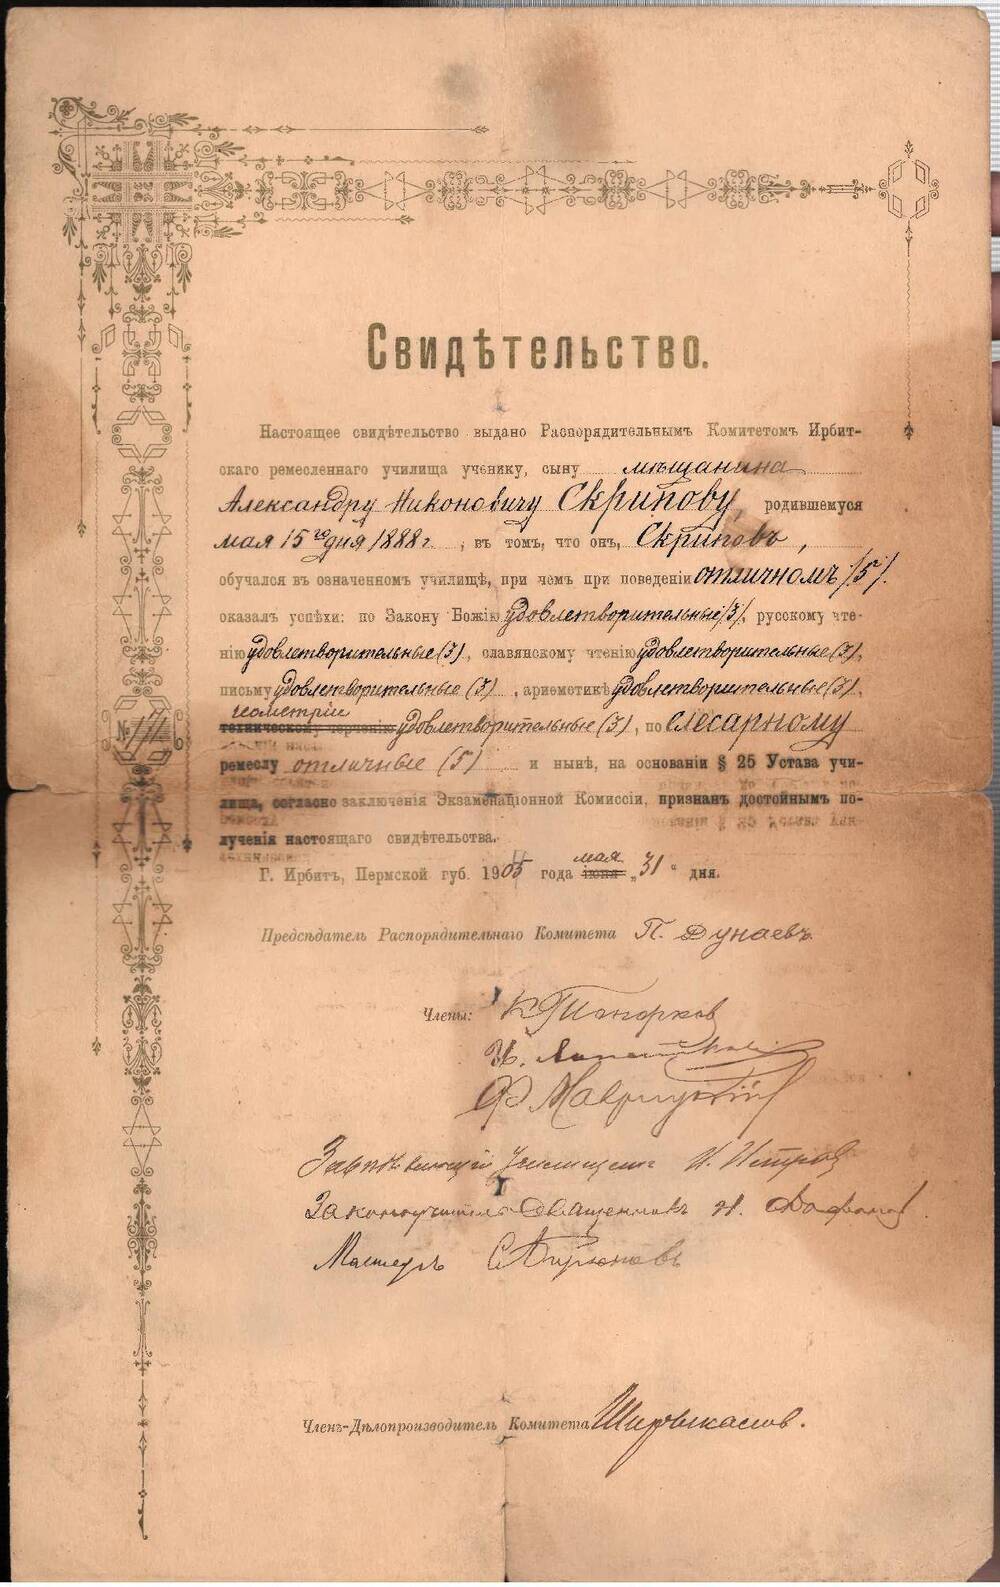 Свидѣтельство.
Настоящее свидѣтельство выдано Распорядительнымъ Комитетомъ Ирбит-
скаго ремесленнаго училища ученику, сыну мѣщанина
Александру Никоновичу Скрипову, родившемуся
мая 15го дня 1888 г, въ томъ, что онъ, Скриповъ,
обучался въ означенномъ училищѣ, при чемъ при поведеніи отличномъ /5/.
оказалъ успѣхи: по Закону Божію удовлетворительные /3/, русскому чте-
нію удовлетворительные (3), славянскому чтенію удовлетворительные (3),
письму удовлетворительные (3), ариѳметикѣ удовлетворительные (3),
геометріи
техническому черченію удовлетворительные (3), по слесарному
ремеслу отличные (5) и нынѣ, на основаніи § 25 Устава учи-
лища, согласно заключенія Экзаменаціонной Комиссіи, признанъ достойнымъ по-
лученія настоящаго свидѣтельства.
мая
Г. Ирбитъ, Пермской губ. 1905 года іюня „31" дня.
№
Предсѣдатель Распорядительнаго Комитета П. Дунаевъ
Члены: К Топорков
Ф Маврицкій
Завѣдывающій Училищемъ И. Петров
Законоучитель Священникъ
Мастеръ С Бирюковъ
Членъ-Дѣлопроизводитель Комитета